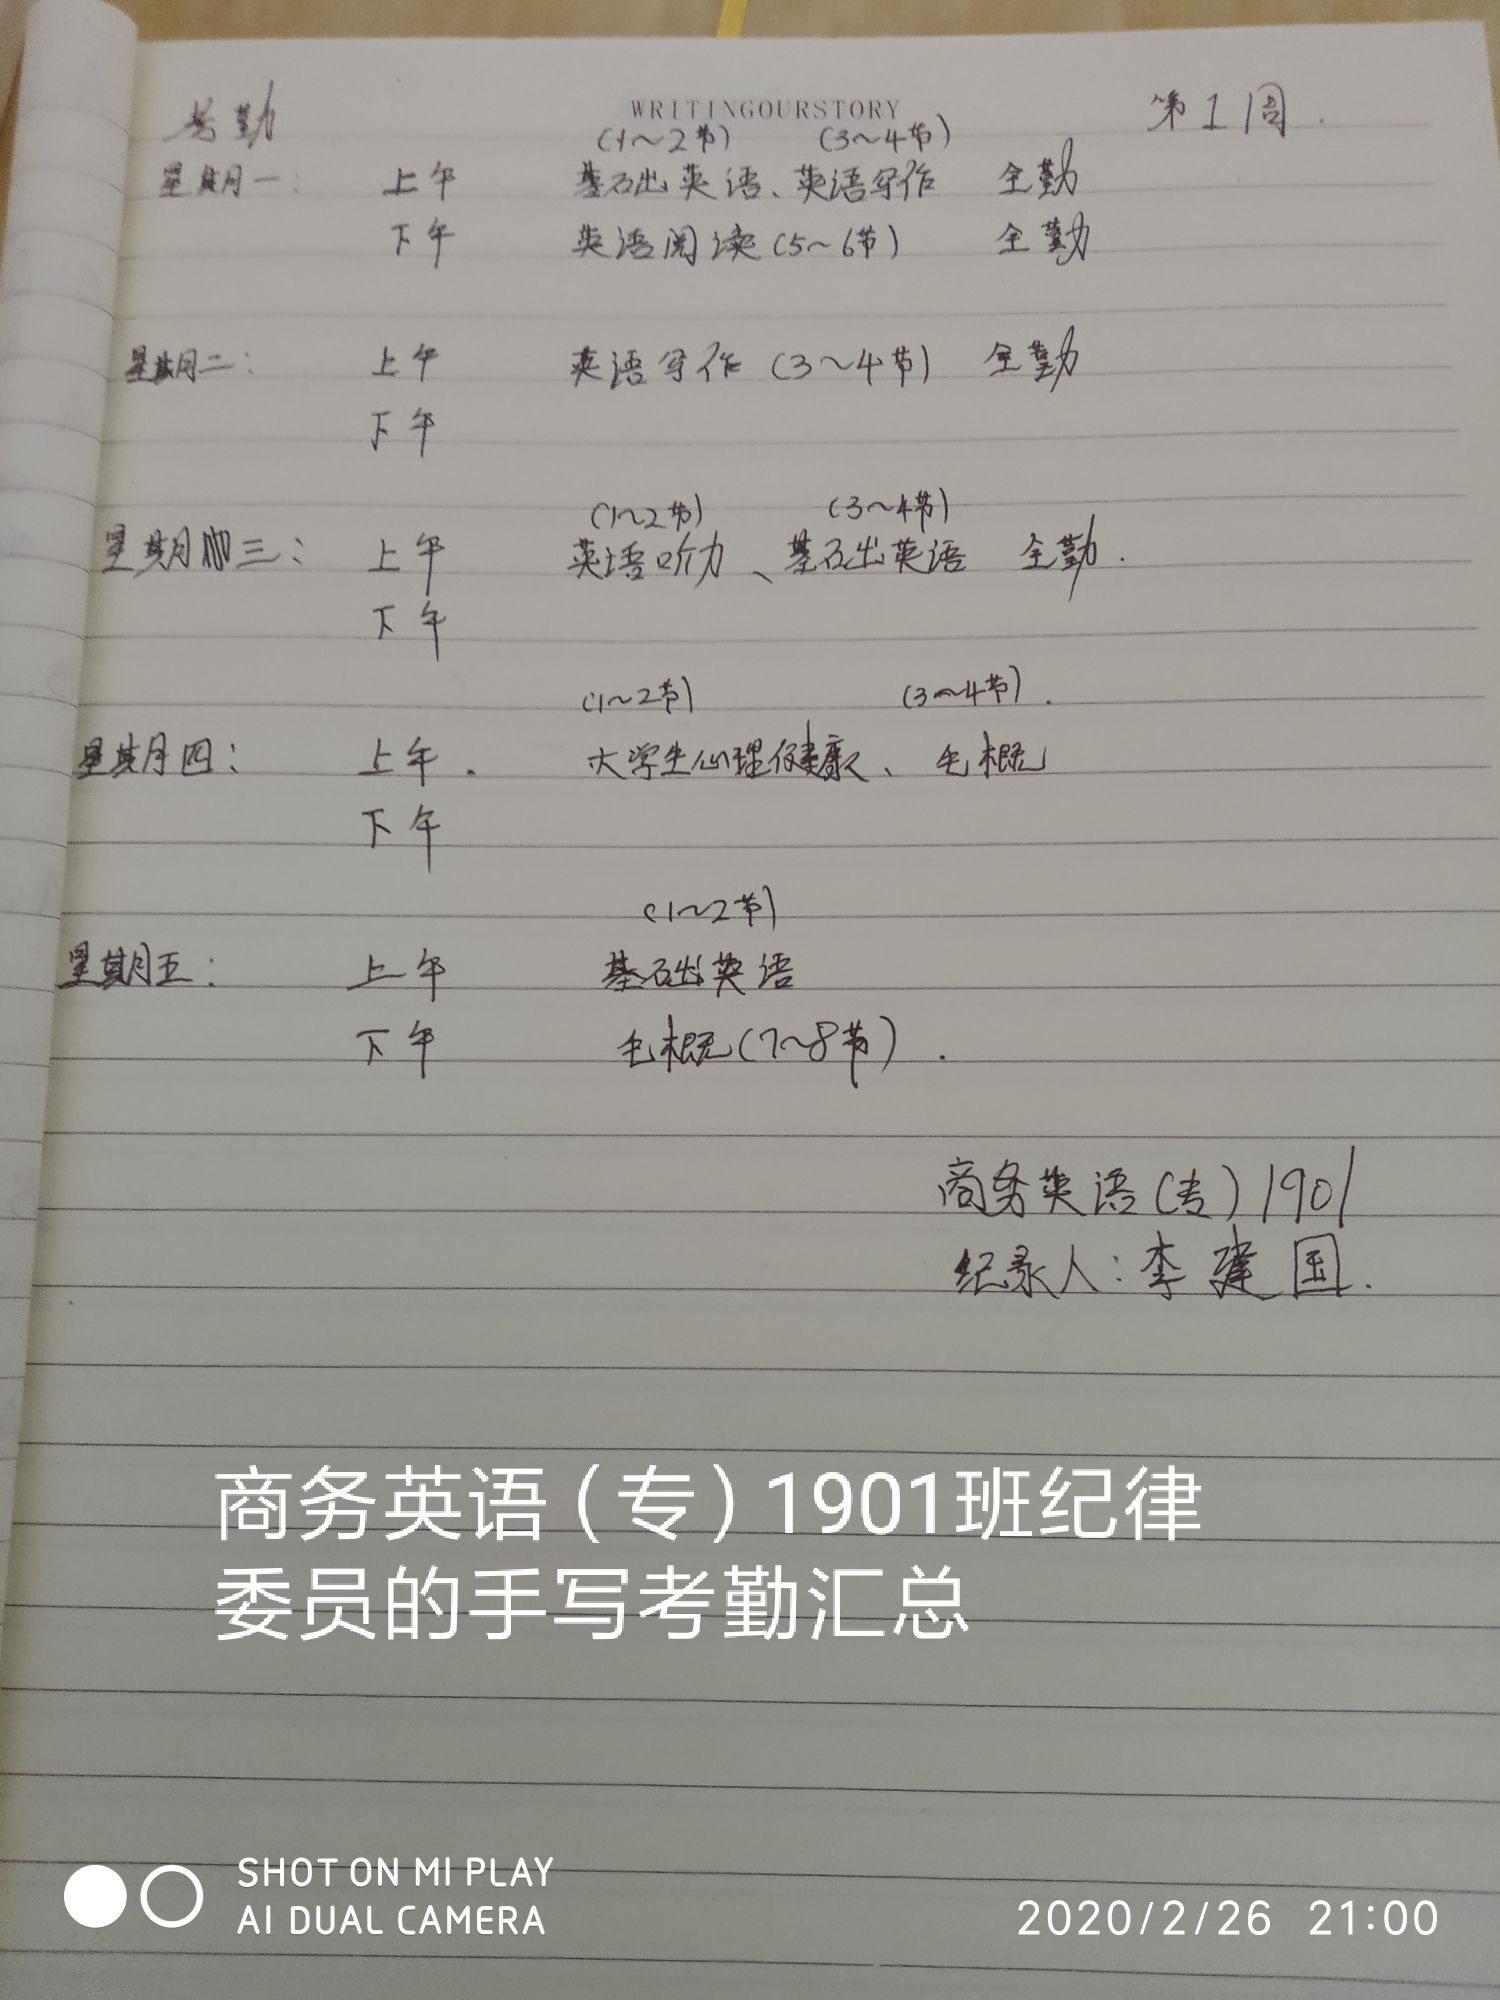 WRITINGOURSTORY
考勤 第1周.
(1～2节) (3～4节)
星期一: 上午 基础英语、英语写作 全勤
下午 英语阅读(5～6节) 全勤
星期二: 上午 英语写作(3～4节) 全勤
下午
(1～2节) (3～4节)
星期三: 上午 英语听力、基础英语 全勤.
下午
(1～2节) (3～4节).
星期四: 上午. 大学生心理健康、毛概
下午
(1～2节)
星期五: 上午 基础英语
下午 毛概(7～8节).
商务英语(专)1901
纪录人:李建国.
商务英语(专)1901班纪律
委员的手写考勤汇总
SHOT ON MI PLAY
AI DUAL CAMERA
2020/2/26 21:00